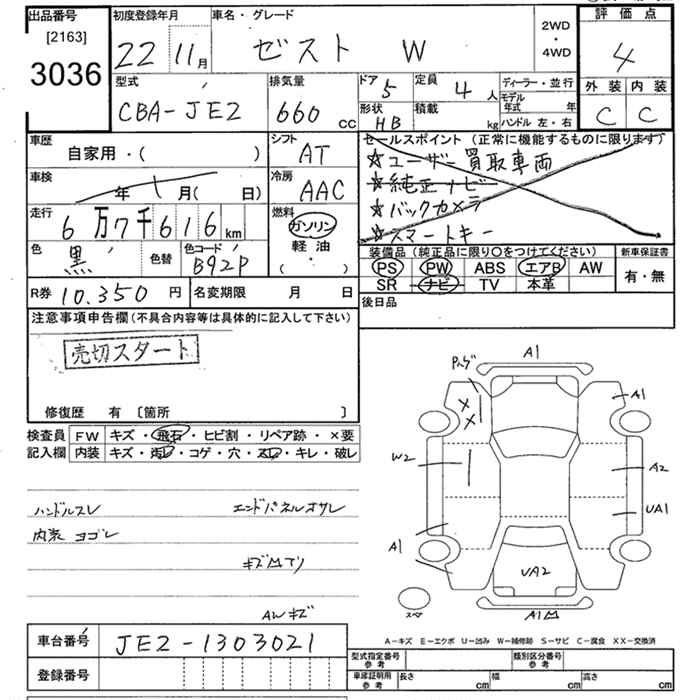 出品番号
[2163]
3036
初度登録年月
22 11月
車名・グレード
ゼスト W
2WD
・
4WD
評価点
4
外装 内装
C C
型式
CBA-JE2
排気量
660 cc
ドア 5
定員 4 人
形状 HB
積載 kg
ディーラー・並行
モデル年式 年
ハンドル 左・右
車歴
自家用・( )
シフト
AT
セールスポイント(正常に機能するものに限ります)
☆ユーザー買取車両
☆純正ナビ
☆バックカメラ
☆スマートキー
車検
年 月( 日)
冷房
AAC
走行
6万7千616km
燃料
ガソリン
軽油
( ・ )
色
黒
色替
色コード
B92P
装備品(純正品に限り○をつけてください)
PS PW ABS エアB AW
SR ナビ TV 本革
新車保証書
有・無
R券 10.350円
名変期限 月 日
後日品
注意事項申告欄(不具合内容等は具体的に記入して下さい)
売切スタート
修復歴 有 [箇所 ]
検査員記入欄
FW キズ・飛石・ヒビ割・リペア跡・×要
内装 キズ・汚レ・コゲ・穴・スレ・キレ・破レ
ハンドルスレ エンドパネルオサレ
内装 ヨゴレ
AWキズ
A1
A1
W2
A2
UA1
A1
UA2
××
A-キズ E-エクボ U-凹み W-補修跡 S-サビ C-腐食 XX-交換済
車台番号 JE2-1303021
登録番号
型式指定番号 参考
類別区分番号 参考
車庫証明用 参考
長さ cm 幅 cm 高さ cm